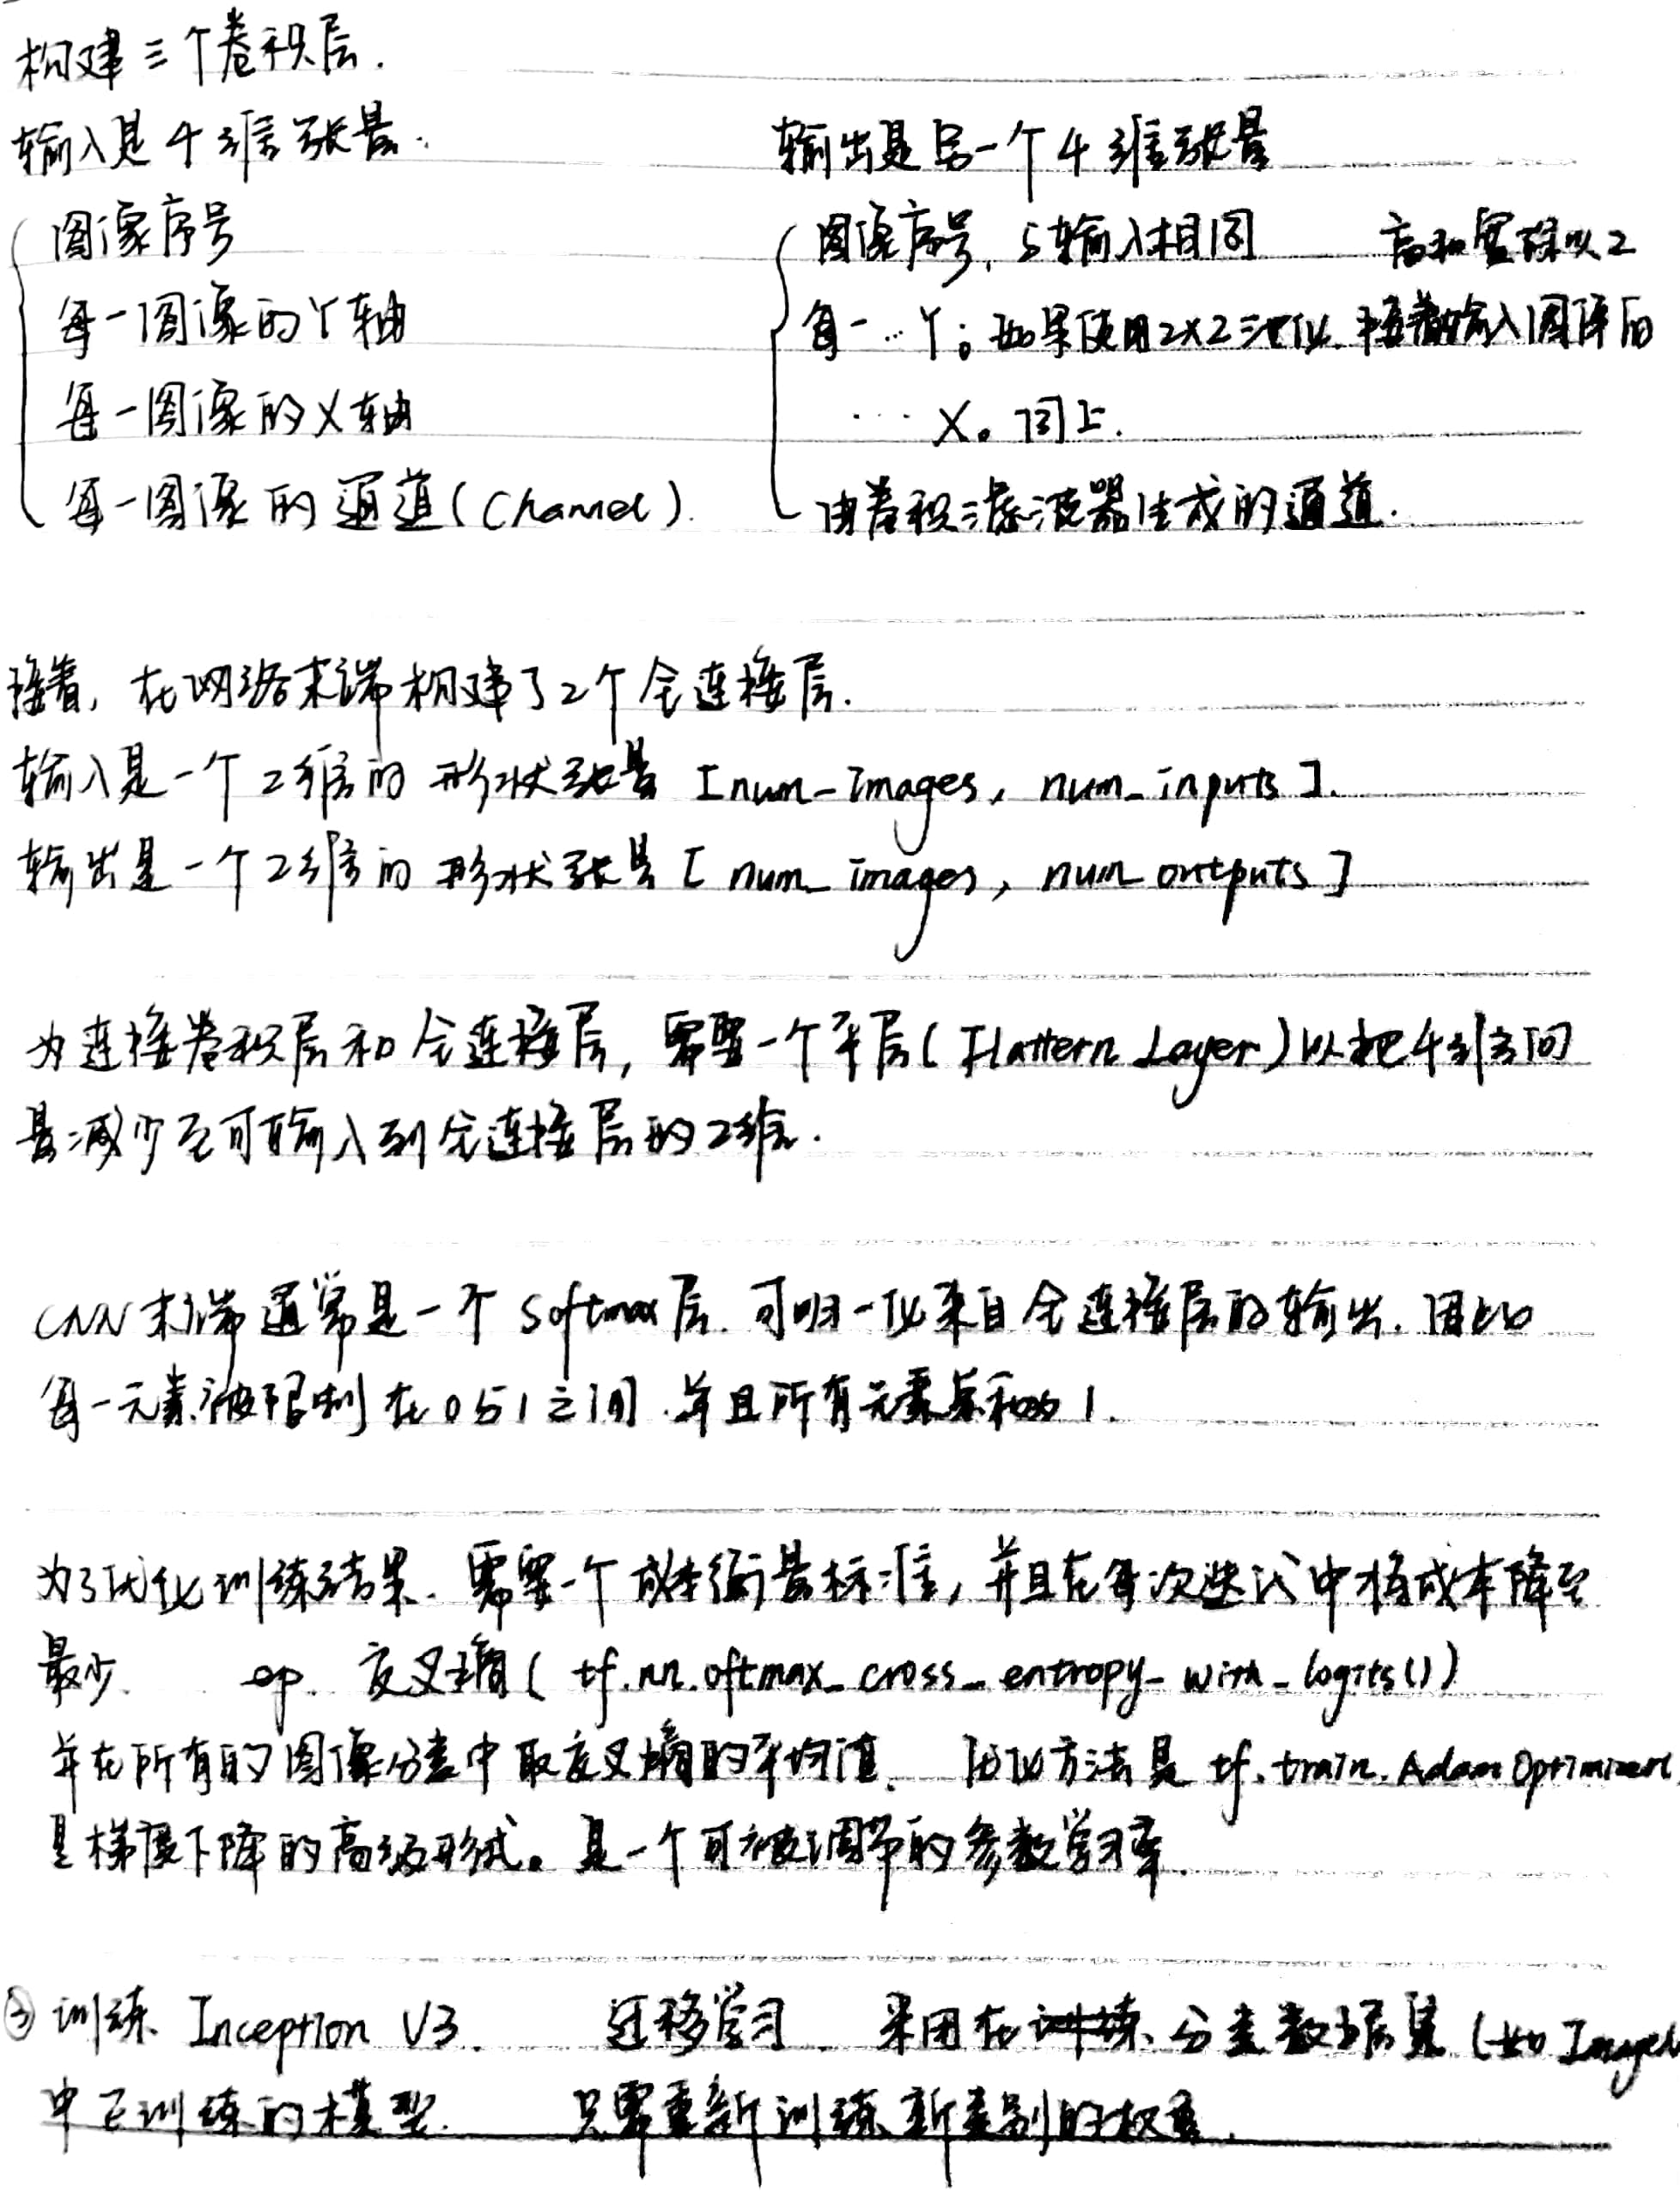 构建三个卷积层.
输入是4维张量.
图像序号
每一图像的Y轴
每一图像的X轴
每一图像的通道(Channel).
输出是另一个4维张量
图像序号, 与输入相同
高和宽除以2
每一…Y。如果使用2×2池化. 接着输入图像后
… X。同上.
由卷积滤波器生成的通道.
接着, 在网络末端构建了2个全连接层.
输入是一个2维的 形状张量 [num_images, num_inputs].
输出是一个2维的 形状张量 [num_images, num_outputs]
为连接卷积层和全连接层, 需要一个平层(Flattern Layer)以把4维向
量减少至可输入到全连接层的2维.
CNN末端通常是一个Softmax层. 可归一化来自全连接层的输出. 因此
每一元素被限制在0与1之间. 并且所有元素总和为1.
为了优化训练结果. 需要一个成本衡量标准, 并且在每次迭代中将成本降至
最少. ep. 交叉熵( tf.nn.oftmax_cross_entropy_with_logits())
并在所有的图像分类中取交叉熵的平均值. 优化方法是 tf.train.AdamOptimizer(
是梯度下降的高级形式。是一个可被调节的参数学习率.
③训练 Inception V3. 迁移学习. 采用在 分类数据集 (如 Image
中已训练的模型. 只需重新训练新类别的权重.